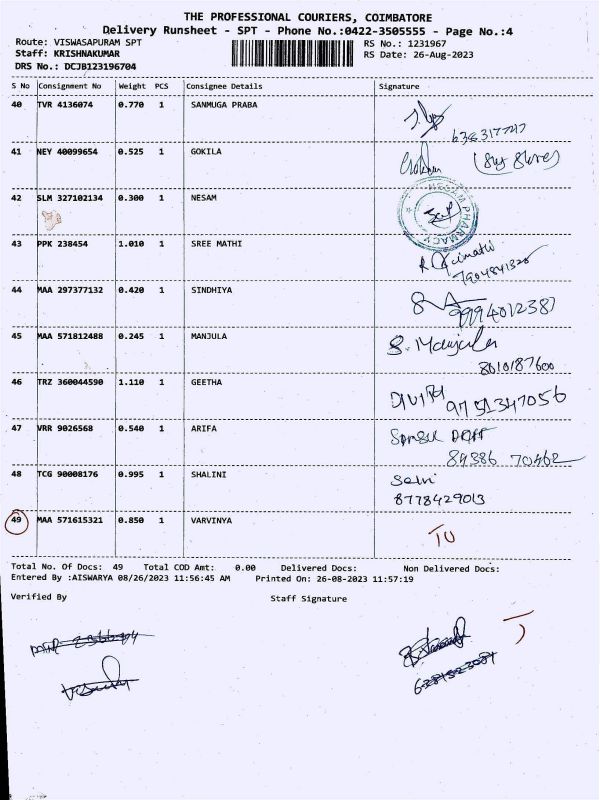 THE PROFESSIONAL COURIERS, COIMBATORE
Delivery Runsheet - SPT - Phone No.:0422-3505555 - Page No.:4
Route: VISWASAPURAM SPT RS No.: 1231967
Staff: KRISHNAKUMAR RS Date: 26-Aug-2023
DRS No.: DCJB123196704
S No Consignment No Weight PCS Consignee Details Signature
40 TVR 4136074 0.770 1 SANMUGA PRABA
41 NEY 40099654 0.525 1 GOKILA
42 SLM 327102134 0.300 1 NESAM
PHARMACY
43 PPK 238454 1.010 1 SREE MATHI
7904841320
44 MAA 297377132 0.420 1 SINDHIYA
9994012387
45 MAA 571812488 0.245 1 MANJULA S. Manjula
8010187600
46 TRZ 360044590 1.110 1 GEETHA
9751347056
47 VRR 9026568 0.540 1 ARIFA
84386 70462
48 TCG 90008176 0.995 1 SHALINI Selvi
8778429013
49 MAA 571615321 0.850 1 VARVINYA
Total No. Of Docs: 49 Total COD Amt: 0.00 Delivered Docs: Non Delivered Docs:
Entered By :AISWARYA 08/26/2023 11:56:45 AM Printed On: 26-08-2023 11:57:19
Verified By Staff Signature